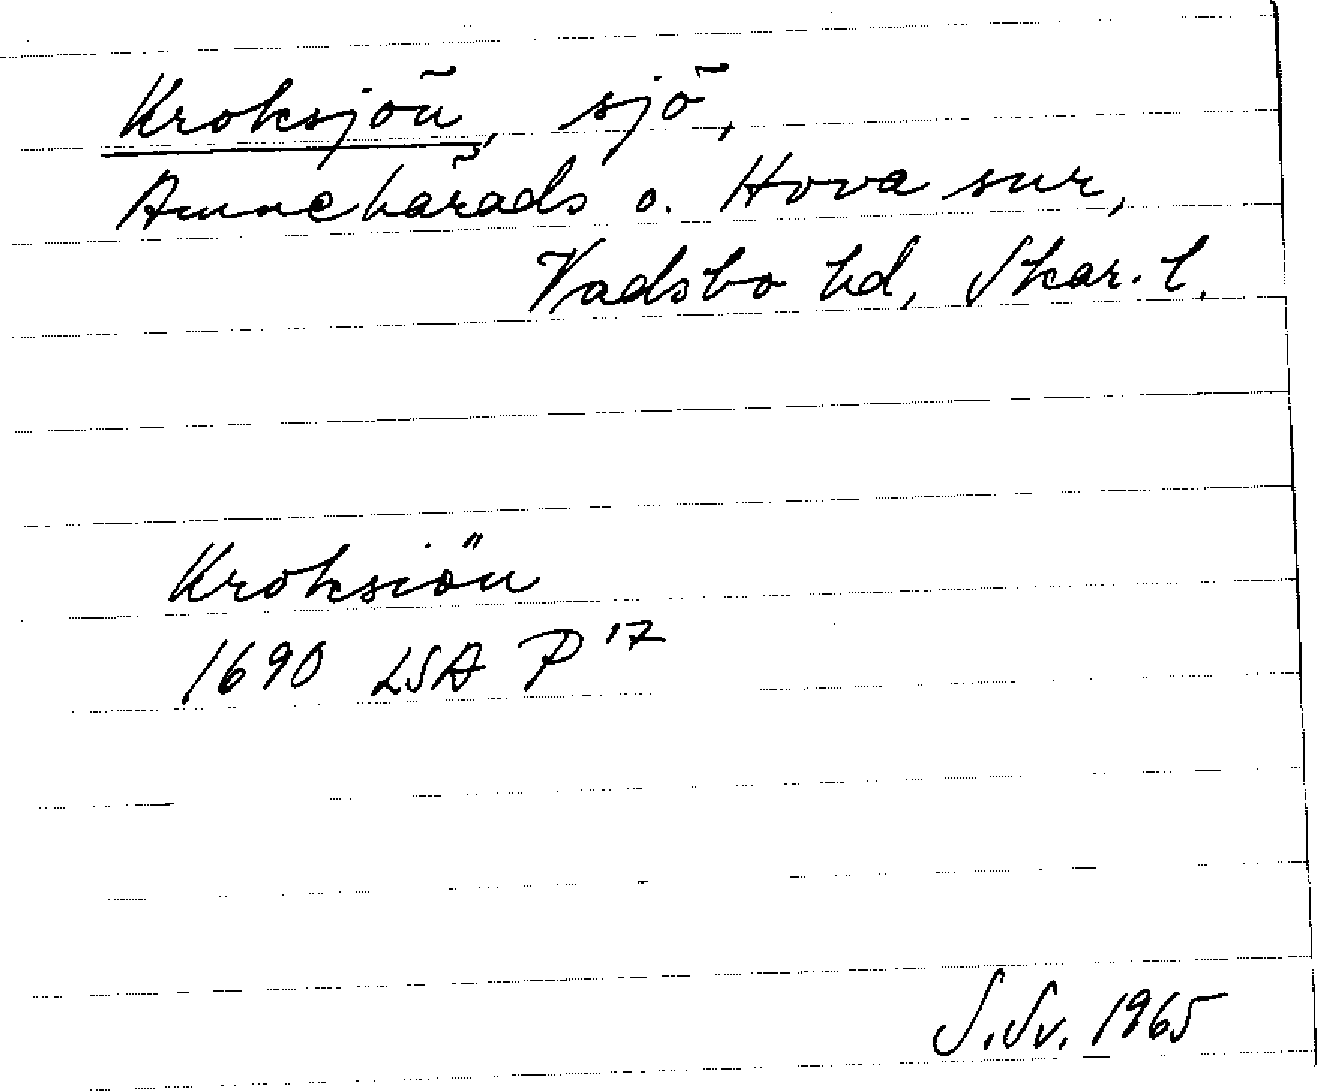 Kroksjön, sjö,
Amnehärads o. Hova snr,
Vadsbo hd, Skar. l.
Kroksiön
1690 LSA P 17
S.Sv. 1965